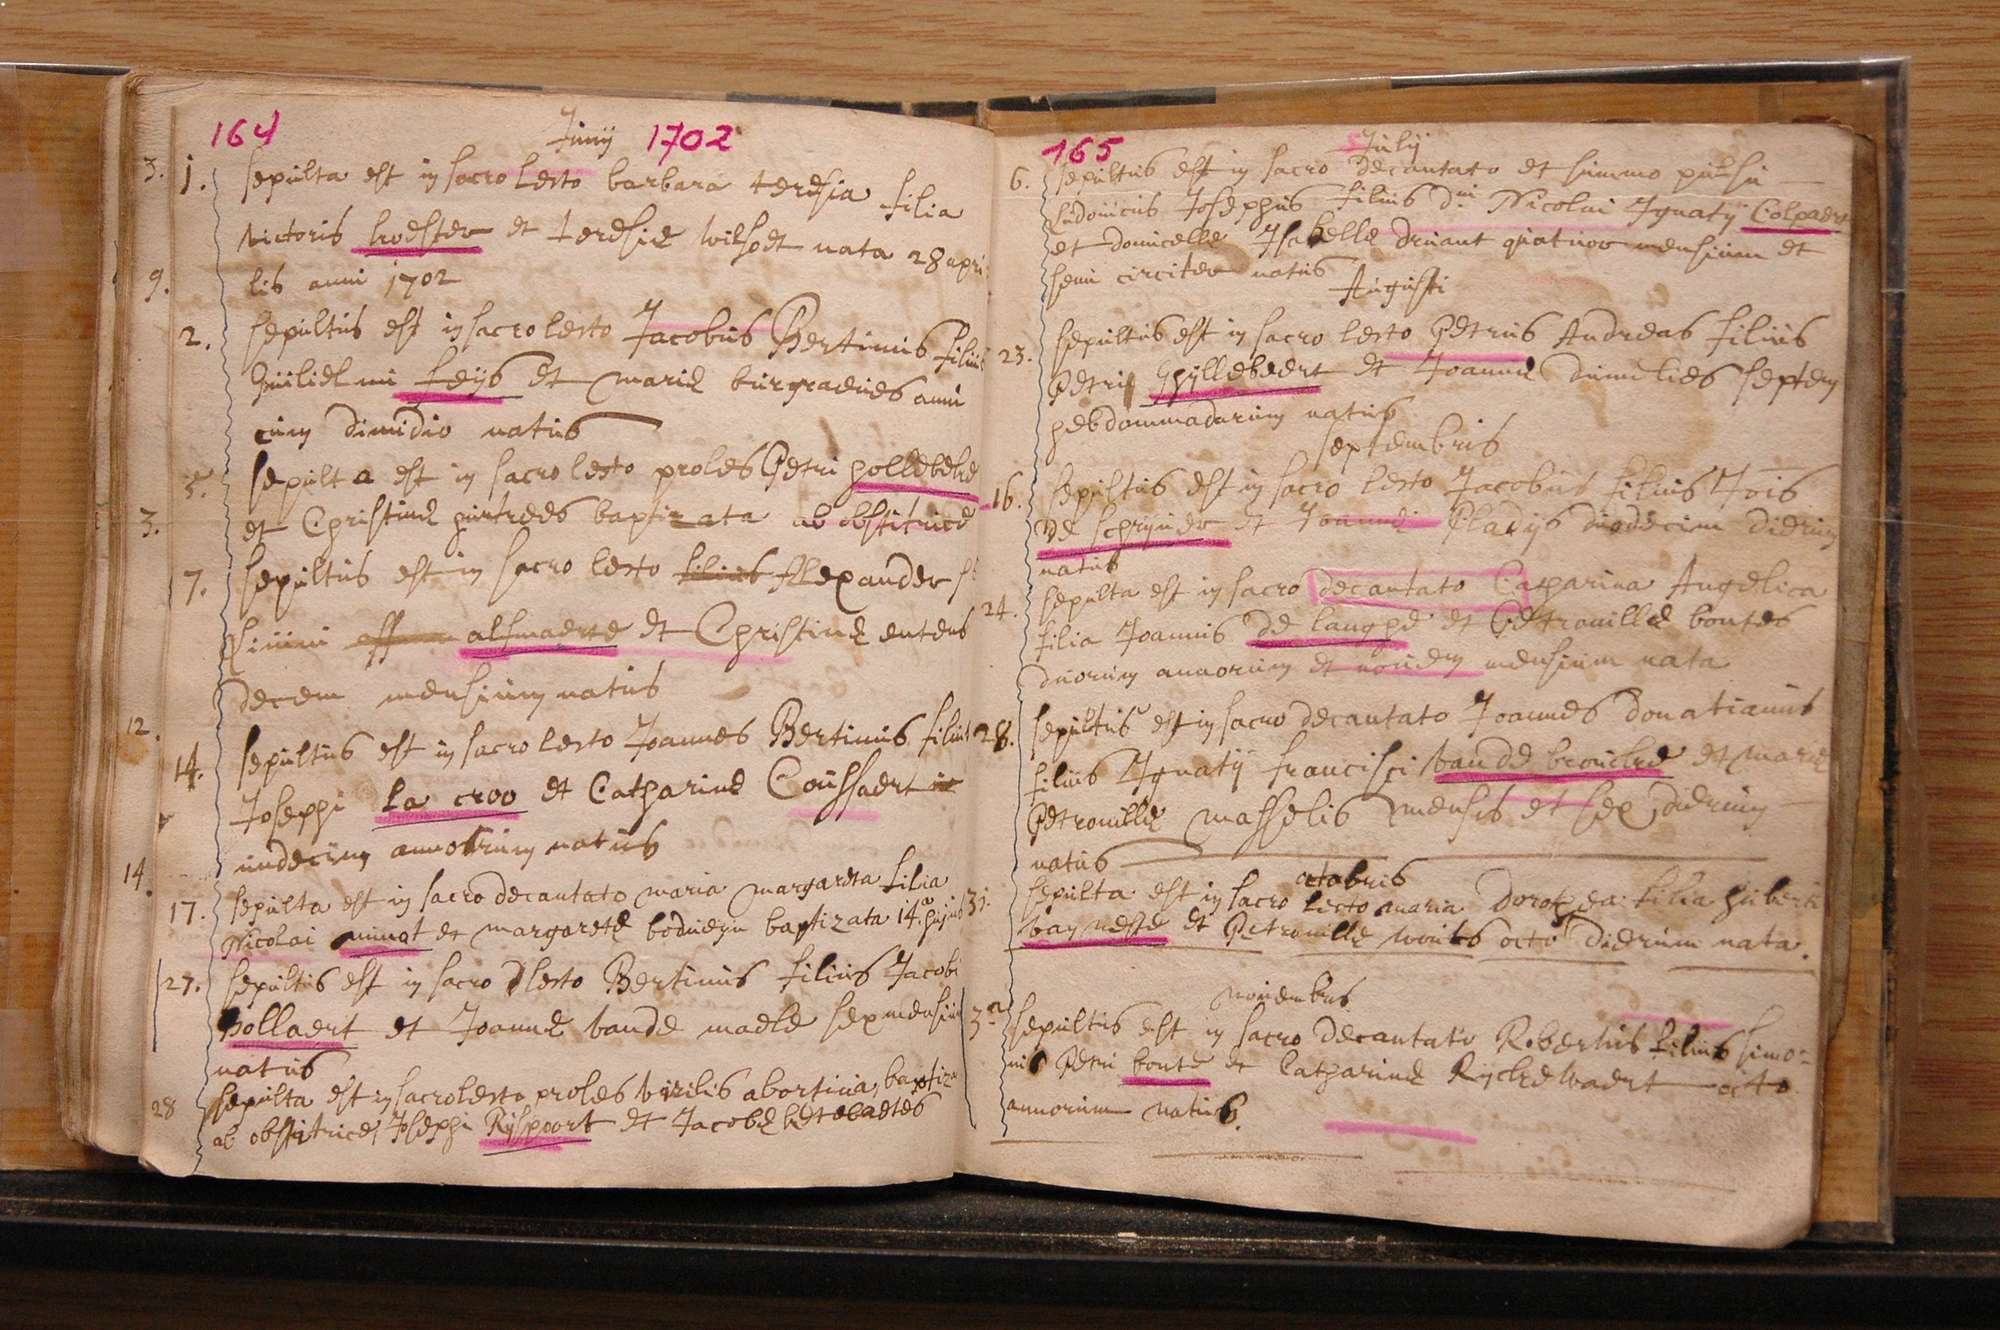 164
Junij 1702
3. 1. sepulta est in sacro lecto barbara teresia filia
victoris hoester et teresie wilsoet nata 28 apri
9. lis anni 1702
2. sepultus est in sacro lecto Jacobus Bertinus filius
Guilielmi feijs et marie burgraeves anni
cum dimidio natus
5. sepulta est in sacro lecto proles Petri hollebeke
3. et Christine baptizata ab obstetrice
7. sepultus est in sacro lecto filius Alexander
alsmaerte et Christine
decem mensium natus
12.
14. sepultus est in sacro lecto Joannes Bertinus filius
Josephi la croo et Catharine Coussaert
undecim annorum natus
14.
17. sepulta est in sacro decantato maria margareta filia
Nicolai minot et margarete bodueyn baptizata 14.a hujus
27. sepultus est in sacro lecto Bertinus filius Jacobi
bollaert et Joanne vande maele sex mensium
natus
28 sepulta est in sacro lecto proles virilis abortiva, baptiz
ab obstitrice, Josephi Rijspoort et Jacobe
165
Julij
6. sepultus est in sacro decantato et summo pulsu
Ludovicus Josephus filius d.ni Nicolai Ignatij Colpaert
et domicelle Isabelle druant quatuor mensium et
semi circiter natus
Augusti
23. sepultus est in sacro lecto Petrus Andreas filius
Petri Ghyllebeert et Joanne septem
hebdommadarum natus
septembris
16. sepultus est in sacro lecto Jacobus filius Jois
de schrijver et Joanne Pladijs duodecim dierum
natus
24. sepulta est in sacro decantato Catharina Angelica
filia Joannis de langhe et Petronille bontes
duorum annorum et novem mensium nata
28. sepultus est in sacro decantato Joannes donatianus
filius Ignatij francisci vande broucke et marie
Petronille masselis mensis et sex dierum
natus
octobris
31. sepulta est in sacro lecto maria dorothea filia huberti
van neste et Petronille wouts octo dierum nata.
novembris
3.a sepultus est in sacro decantato Robertus filius simo=
nis Petri bonte et Catharine Ryckewaert octo
annorum natus.